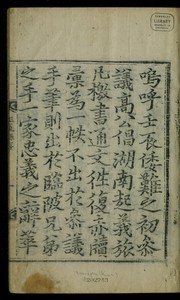 嗚呼壬辰倭難之初參
議高公倡湖南起義旅
凡檄書通文徃復赤牘
彙為一帙不出於參議
手筆則出於臨陂兄弟
之手一家忠義之辭萃
LIBRARY